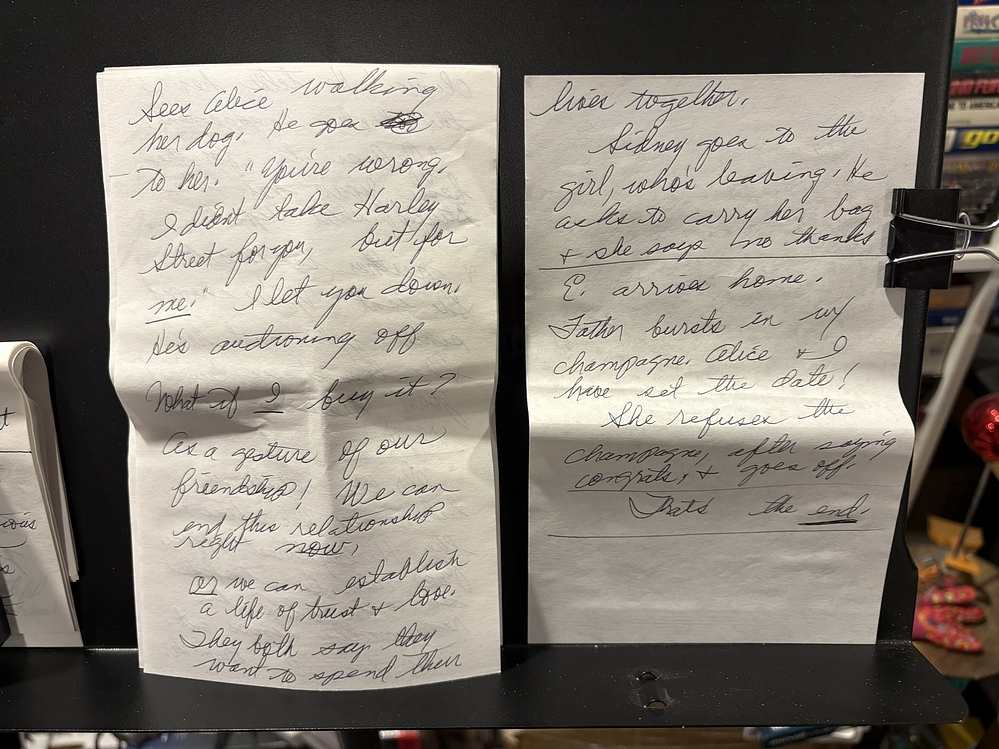 Sees Alice walking
her dog. He goes
to her. "You're wrong.
I didnt take Harley
Street for you, but for
me." I let you down.
He's auctioning off
What if I buy it?
As a gesture of our
friendship! We can
end this relationship
right now,
or we can establish
a life of trust + love.
They both say they
want to spend their
lives together.
Sidney goes to the
girl, who's leaving. He
asks to carry her bag
+ she says no thanks
E. arrives home.
Father bursts in w/
champagne. Alice + I
have set the date!
She refuses the
champagne, after saying
congrats, + goes off.
Thats the end.